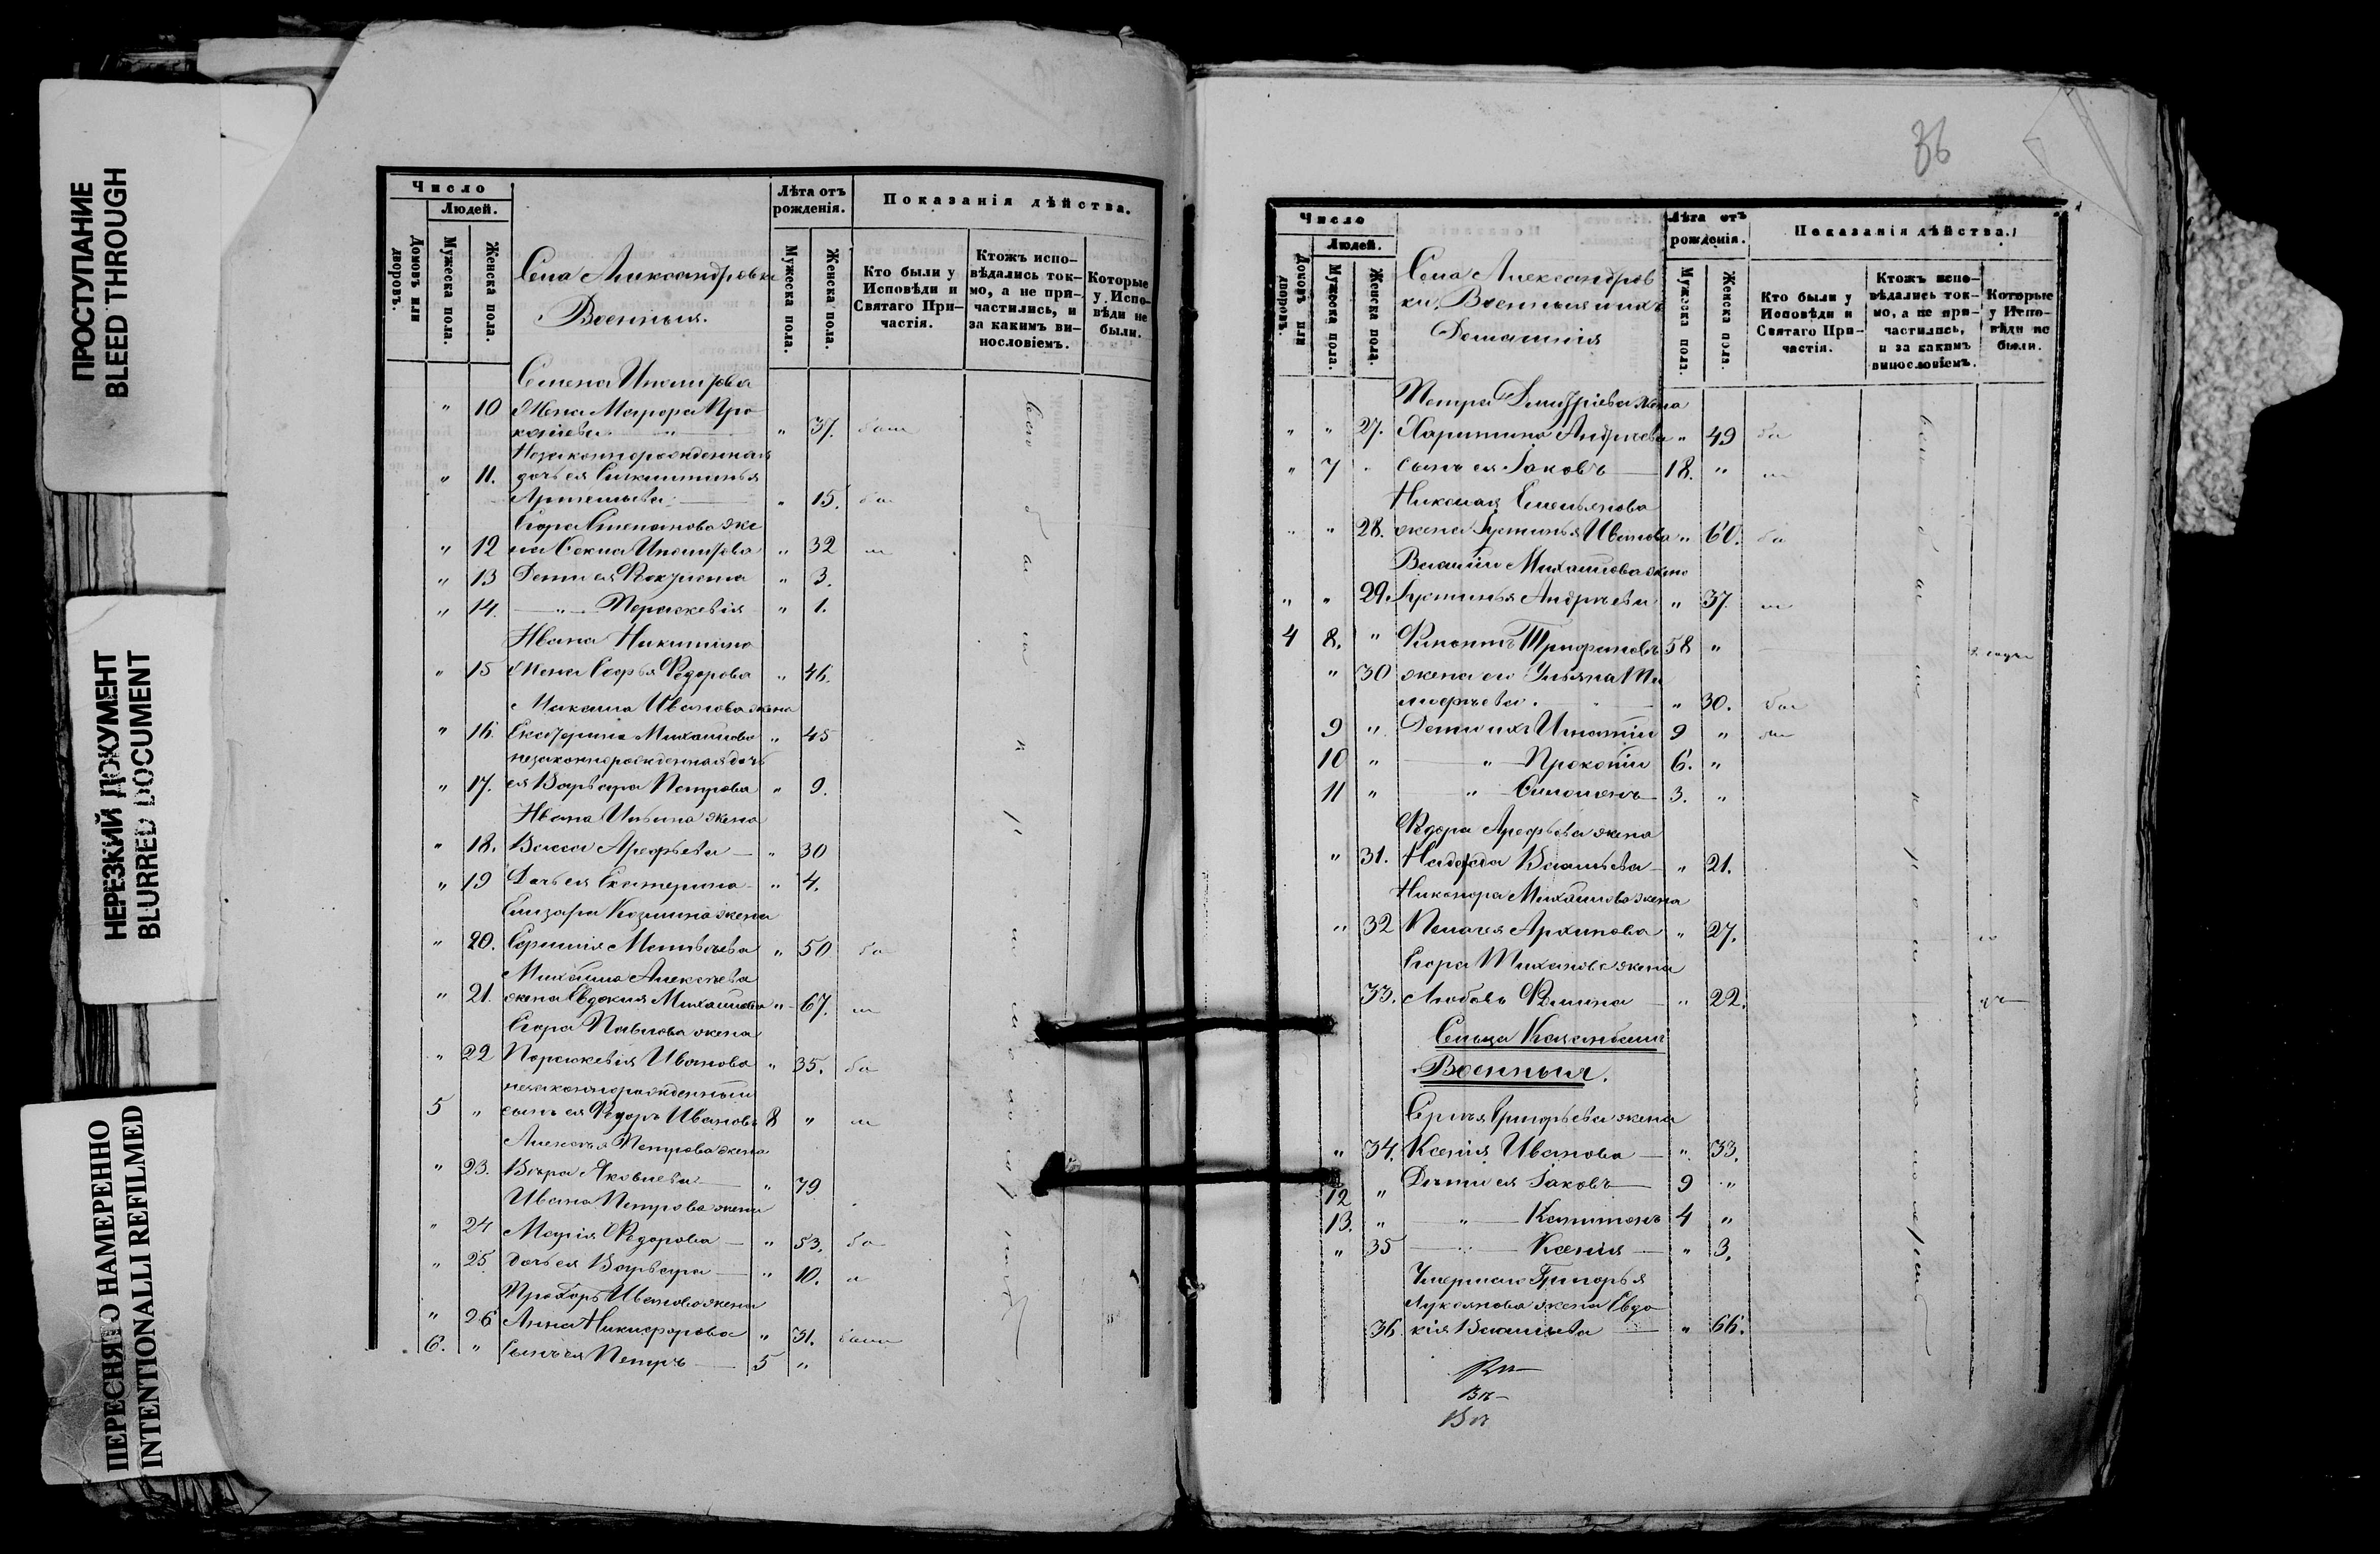 ПРОСТУПАНИЕ
BLEED THROUGH
НЕРЕЗКИЙ ДОКУМЕНТ
BLURRED DOCUMENT
ПЕРЕСНЯТО НАМЕРЕННО
INTENTIONALLI REFILMED
Число
Людей.
Домовъ или дворовъ.
Мужеска пола.
Женска пола.
Села Александровки
Военныя.
Лѣта отъ рожденія.
Мужеска пола.
Женска пола.
Показанія дѣйства.
Кто были у Исповѣди и Святаго Причастія.
Ктожъ исповѣдались токмо, а не причастились, и за какимъ винословіемъ.
Которые у Исповѣди не были.
Семена
" 10 Жена Марфа Про
" 37.
Незаконнорожденная
" 11. дочь ея
Артемьева " 15.
Егора Степанова же
" 12 на " 32
" 13 Дети ея Феклиста " 3.
" 14. " Параскевія " 1.
Ивана Никитина
" 15 Жена Софья Федорова " 46.
Ивановажена
" 16. Екатерина Михайлова " 45
незаконнорожденная дочь
" 17. ея Варвара Петрова " 9.
Ивана Ильина жена
" 18. Васса Арефьева " 30
" 19 Дочь ея Екатерина " 4.
Елизара Козмина жена
" 20. " 50
Михайла Алексѣева
" 21. жена Евдокия Михайлова " 67.
Егора Павлова жена
" 22 Параскевія Иванова " 35.
незаконнорожденный
5 " сынъ ея Федоръ Ивановъ 8 "
Алексѣя Петрова жена
" 23. Вѣра Яковлева " 79
Ивана Петрова жена
" 24 Марія Федорова " 53.
" 25 дочь ея Варвара " 10.
Иванова жена
" 26 Анна Никифорова " 31.
6. " Сынъ ея Петръ 5 "
36
Число
Людей.
Домовъ или дворовъ.
Мужеска пола.
Женска пола.
Села Александров
ки, Военныя и ихъ
Домашнія
Лѣта отъ рожденія.
Мужеска пола.
Женска пола.
Показанія дѣйства.
Кто были у Исповѣди и Святаго Причастія.
Ктожъ исповѣдались токмо, а не причастились, и за какимъ винословіемъ.
Которые у Исповѣди не были.
Петра Дмитріева жена
" " 27. Харитина Андреева " 49
" 7 " сынъ ея Іаковъ 18. "
Николая Емельянова
" " 28. жена Іустинья Иванова " 60.
Василія Михайлова жена
" " 29. Іустинья Андрѣева " 37.
4 8. " Трифоновъ 58 "
" 30 жена его Ульяна Ти
мофѣева. " 30.
9 " Дети ихъ Игнатій 9 "
10 " " Прокопій 6. "
11 " " 3. "
Федора Арефьева жена
" 31. Надежда Васильева " 21.
Никонора Михайлова жена
" 32 Пелагея Архипова " 27.
Егора жена
33. Любовь Фомина " 22.
Сельца
Военныя.
Сергѣя Григорьева жена
" 34. Ксенія Иванова " 33.
12 " Дѣти ея Іаковъ 9 "
13. " " Капитонъ 4 "
" 35 " Ксенія " 3.
Умершаго Григорья
Лукьянова жена Евдо
36. кія Васильева " 66.